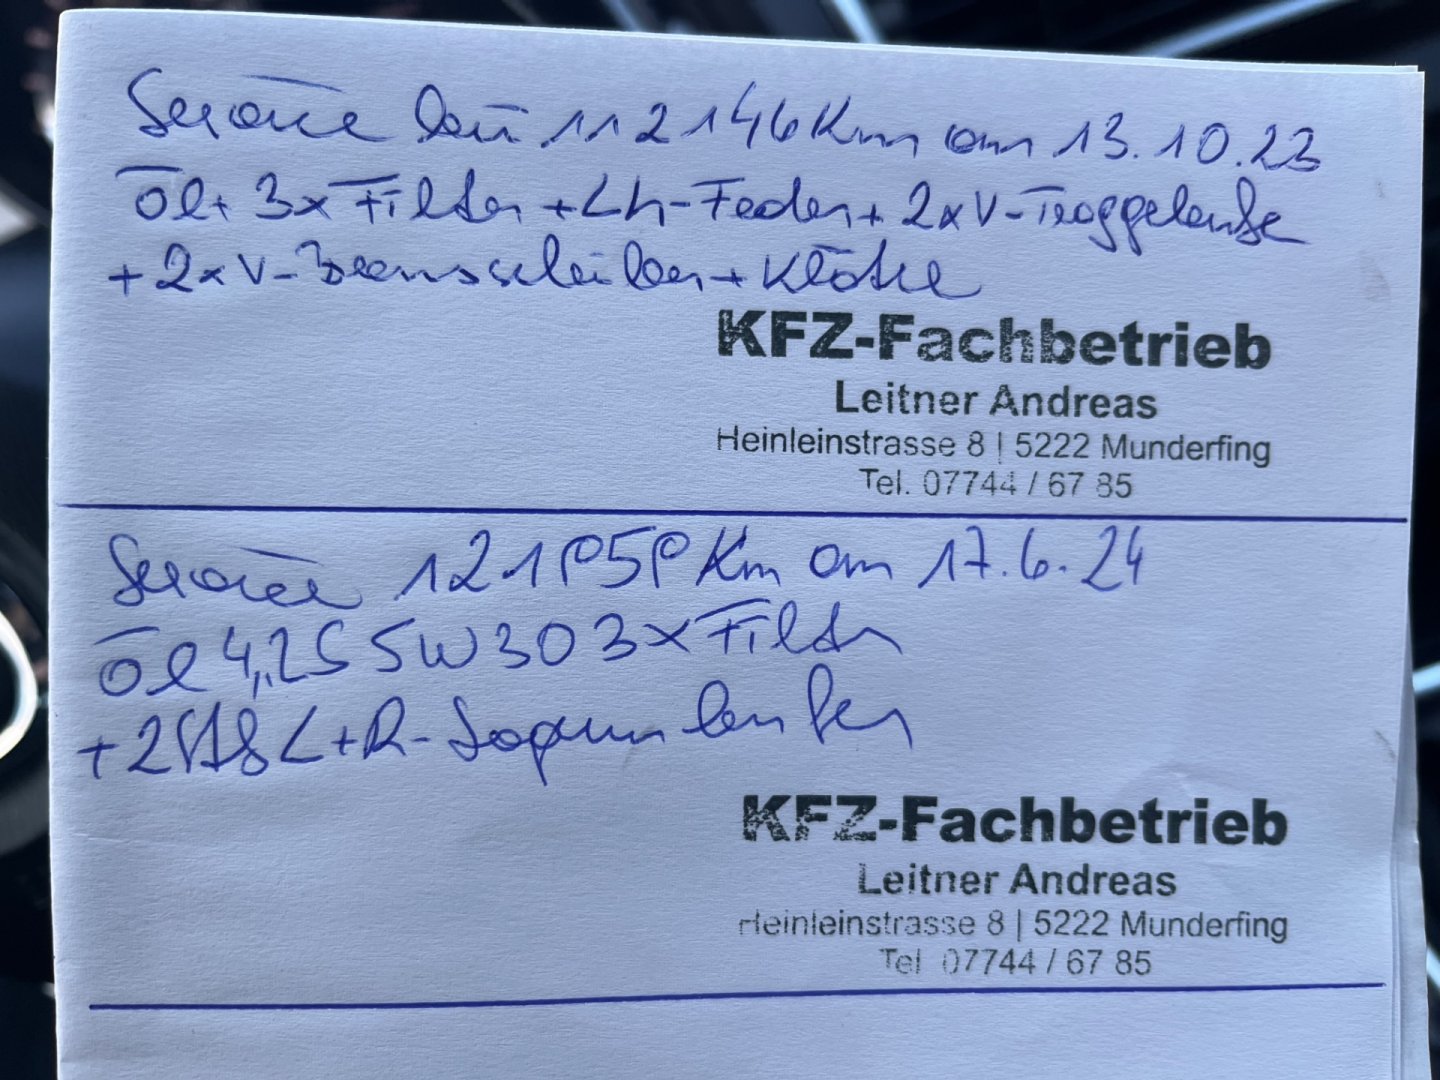 Service bei 112146 Km am 13.10.23
Öl + 3x Filter + Lh-Feder + 2x V-Traggelenke
+ 2x V-Bremsscheiben + Klötze
KFZ-Fachbetrieb
Leitner Andreas
Heinleinstrasse 8 | 5222 Munderfing
Tel. 07744 / 67 85
Service 121959 Km am 17.6.24
Öl 4,25 5W30 3x Filter
+ L+R-
KFZ-Fachbetrieb
Leitner Andreas
Heinleinstrasse 8 | 5222 Munderfing
Tel 07744 / 67 85